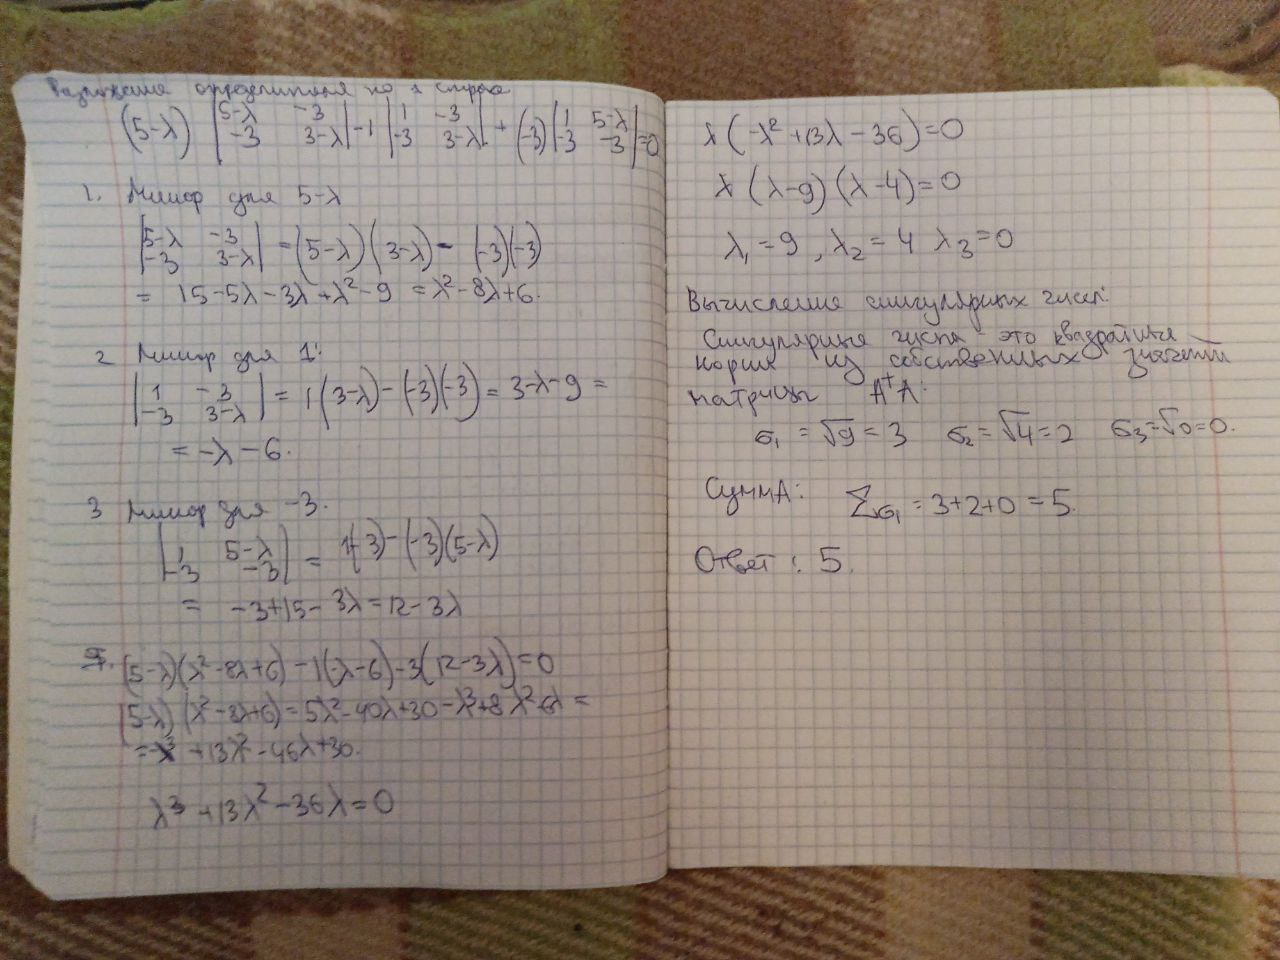 Разложение определителя по 1 строке
(5-λ) |5-λ -3; -3 3-λ| - 1 |1 -3; -3 3-λ| + (-3) |1 5-λ; -3 -3| = 0
1. Минор для 5-λ
|5-λ -3; -3 3-λ| = (5-λ)(3-λ) - (-3)(-3)
= 15-5λ-3λ+λ²-9 = λ²-8λ+6.
2 Минор для 1:
|1 -3; -3 3-λ| = 1(3-λ)-(-3)(-3) = 3-λ-9 =
= -λ-6.
3 Минор для -3.
|1 5-λ; -3 -3| = 1(-3)-(-3)(5-λ)
= -3+15-3λ=12-3λ
(5-λ)(λ²-8λ+6)-1(-λ-6)-3(12-3λ)=0
(5-λ)(λ²-8λ+6)=5λ²-40λ+30-λ³+8λ²-6λ =
= -λ³ +13λ² -46λ+30.
λ³ +13λ² -36λ=0
λ(-λ²+13λ-36)=0
λ(λ-9)(λ-4)=0
λ₁=9, λ₂=4 λ₃=0
Вычисление сингулярных чисел:
Сингулярные числа - это квадратные
корни из собственных значений
матрицы A⁺A:
σ₁ = √9 = 3 σ₂ = √4 = 2 σ₃ = √0 = 0.
СуммА: Σσ₁ = 3+2+0 = 5.
Ответ: 5.